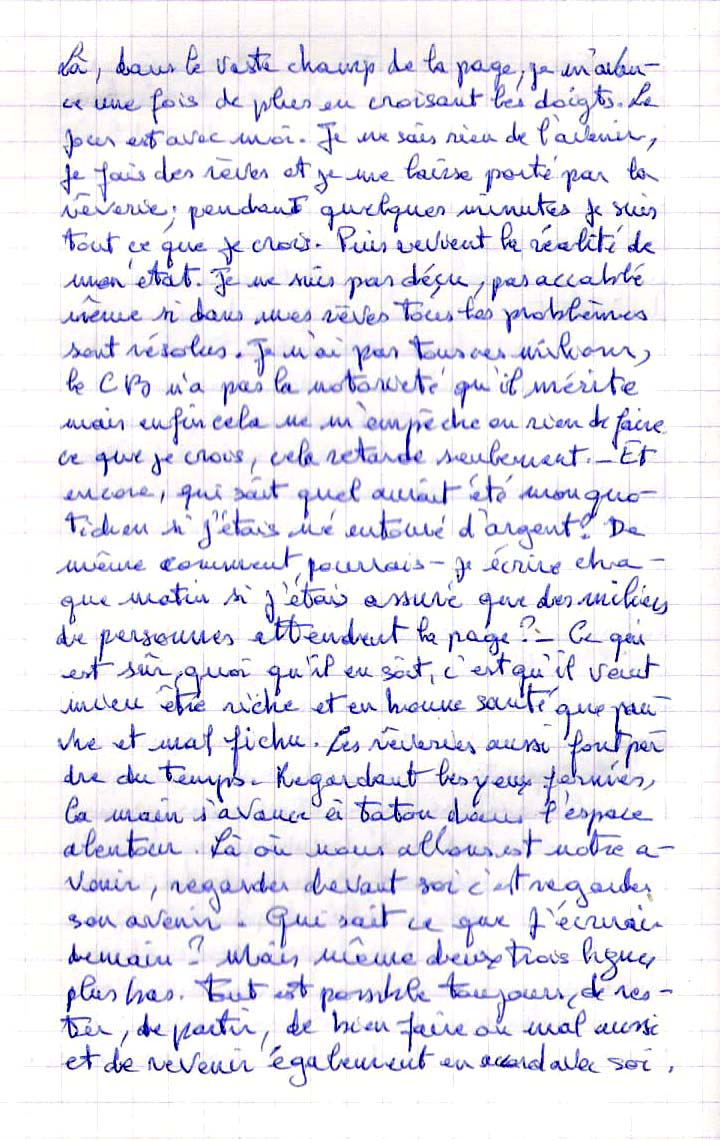 Là, dans le vaste champ de la page, je m'avan-
ce une fois de plus en croisant les doigts. Le
jour est avec moi. Je ne sais rien de l'avenir,
je fais des rêves et je me laisse porté par la
rêverie; pendant quelques minutes je suis
tout ce que je crois. Puis revient la réalité de
mon état. Je ne suis pas déçu, pas accablé
même si dans mes rêves tous les problèmes
sont résolus. Je n'ai pas tous ces millions,
le CB n'a pas la notorieté qu'il mérite
mais enfin cela ne m'empêche en rien de faire
ce que je crois, cela retarde seulement. – Et
encore, qui sait quel aurait été mon quo-
tidien si j'étais né entouré d'argent? De
même comment pourrais-je écrire cha-
que matin si j'étais assuré que des milliers
de personnes attendent la page? – Ce qui
est sûr, quoi qu'il en soit, c'est qu'il vaut
mieu être riche et en bonne santé que pau
vre et mal fichu. Les rêveries aussi font per
dre du temps. Regardant les yeux fermés,
la main s'avance à taton dans l'espace
alentour. Là où nous allons est notre a-
venir, regarder devant soi c'est regarder
son avenir. Qui sait ce que j'écrirai
demain? Mais même deux trois lignes
plus bas. Tout est possible toujours, de res-
ter, de partir, de bien faire ou mal aussi
et de revenir également en accord avec soi.